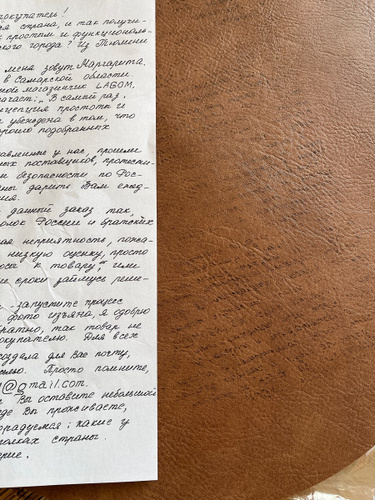 покупатель!
ая страна, и так получи-
к простым и функциональ-
ского города? Из Тюмени
меня зовут Маргарита,
в Самарской области
ной магазинчик LAGOM,
значает: „В самый раз".
нцепция простоты и
убеждена в том, что
хорошо подобранных
авленные у нас, прошли
ных поставщиков, протести-
и безопасности по Рос-
ны дарить Вам ежед-
ния.
данный заказ так,
олок России и братских
ая неприятность, пожа-
низкую оценку, просто
осы к товару", или
ие сроки займусь реше-
- запустите процесс
фото изъяна, я одобрю
братно, так товар не
окупателю. Для всех
создала для Вас почту,
Просто помните,
@gmail.com.
Вы оставите небольшой
где Вы проживаете,
орадуемся: какие у
голках страны.